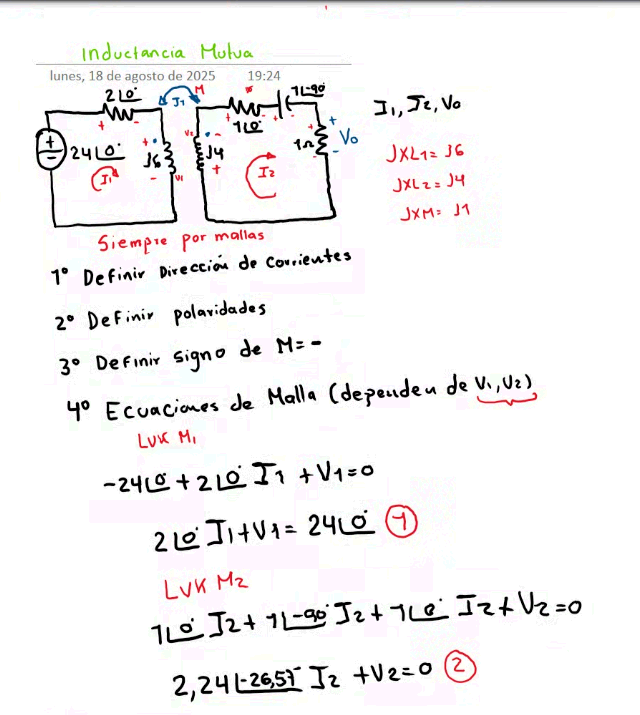 Inductancia Mutua
lunes, 18 de agosto de 2025 19:24
2∠0° J1 M 1∠-90°
1∠0°
24∠0° J6 V1 V2 J4 1Ω Vo
I1 I2
I1, I2, Vo
JXL1 = J6
JXL2 = J4
JXM = J1
Siempre por mallas
1° Definir Dirección de Corrientes
2° Definir polaridades
3° Definir signo de M = -
4° Ecuaciones de Malla (dependen de V1, V2)
LVK M1
-24∠0° + 2∠0° I1 + V1 = 0
2∠0° I1 + V1 = 24∠0° 1
LVK M2
1∠0° I2 + 1∠-90° I2 + 1∠0° I2 + V2 = 0
2,24∠-26,57° I2 + V2 = 0 2